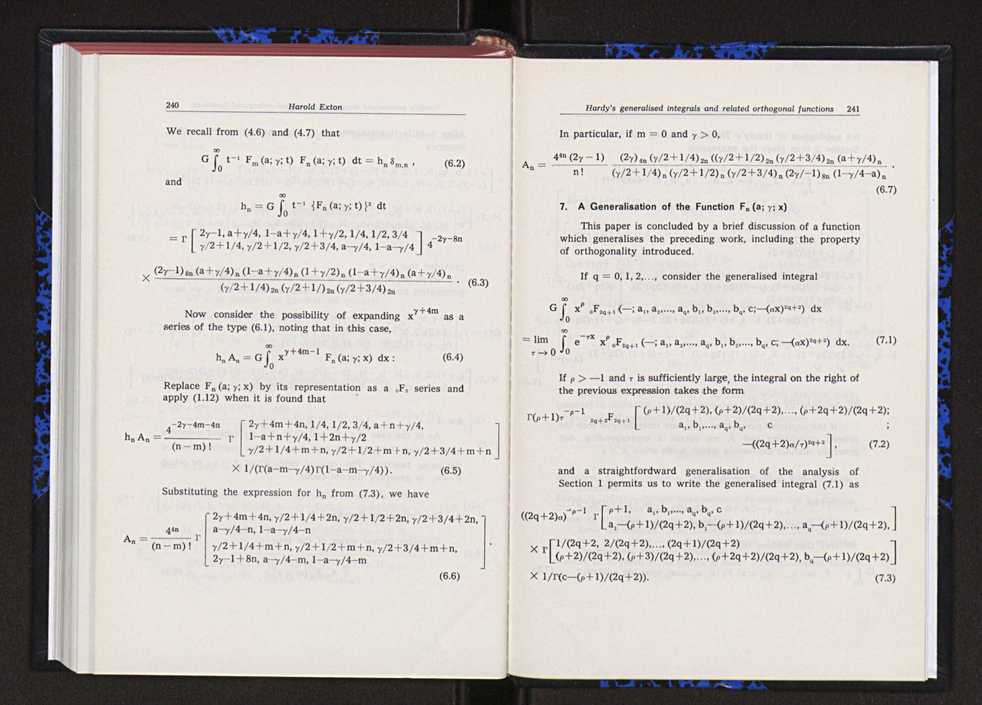 240 Harold Exton
We recall from (4.6) and (4.7) that
G ∫₀^∞ t⁻¹ Fₘ (a; γ; t) Fₙ (a; γ; t) dt = hₙ δₘ,ₙ , (6.2)
and
hₙ = G ∫₀^∞ t⁻¹ {Fₙ (a; γ; t) }² dt
= Γ [ 2γ—1, a+γ/4, 1—a+γ/4, 1+γ/2, 1/4, 1/2, 3/4
γ/2+1/4, γ/2+1/2, γ/2+3/4, a—γ/4, 1—a—γ/4 ] 4^{-2γ-8n}
× (2γ—1)₈ₙ (a+γ/4)ₙ (1—a+γ/4)ₙ (1+γ/2)ₙ (1—a+γ/4)ₙ (a+γ/4)ₙ
(γ/2+1/4)₂ₙ (γ/2+1/)₂ₙ (γ/2+3/4)₂ₙ . (6.3)
Now consider the possibility of expanding x^{γ+4m} as a
series of the type (6.1), noting that in this case,
hₙ Aₙ = G ∫₀^∞ x^{γ+4m−1} Fₙ (a; γ; x) dx : (6.4)
Replace Fₙ (a; γ; x) by its representation as a ₀F₃ series and
apply (1.12) when it is found that
hₙ Aₙ = 4^{-2γ-4m-4n} / (n—m) ! Γ [ 2γ+4m+4n, 1/4, 1/2, 3/4, a+n+γ/4,
1—a+n+γ/4, 1+2n+γ/2
γ/2+1/4+m+n, γ/2+1/2+m+n, γ/2+3/4+m+n ]
× 1/(Γ(a—m—γ/4)Γ(1—a—m—γ/4)). (6.5)
Substituting the expression for hₙ from (7.3), we have
Aₙ = 4^{4n} / (n—m) ! Γ [ 2γ+4m+4n, γ/2+1/4+2n, γ/2+1/2+2n, γ/2+3/4+2n,
a—γ/4—n, 1—a—γ/4—n
γ/2+1/4+m+n, γ/2+1/2+m+n, γ/2+3/4+m+n,
2γ—1+8n, a—γ/4—m, 1—a—γ/4—m ] .
(6.6)
Hardy's generalised integrals and related orthogonal functions 241
In particular, if m = 0 and γ > 0,
Aₙ = 4^{4n} (2γ — 1) / n ! (2γ)₄ₙ (γ/2+1/4)₂ₙ ((γ/2+1/2)₂ₙ (γ/2+3/4)₂ₙ (a+γ/4)ₙ
(γ/2+1/4)ₙ (γ/2+1/2)ₙ (γ/2+3/4)ₙ (2γ/—1)₈ₙ (1—γ/4—a)ₙ .
(6.7)
7. A Generalisation of the Function Fₙ (a; γ; x)
This paper is concluded by a brief discussion of a function
which generalises the preceding work, including the property
of orthogonality introduced.
If q = 0, 1, 2,..., consider the generalised integral
G ∫₀^∞ x^ρ ₀F_{2q+1} (—; a₁, a₂,..., a_q, b₁, b₂,..., b_q, c;—(αx)^{2q+2}) dx
= lim_{τ→0} ∫₀^∞ e^{−τx} x^ρ ₀F_{2q+1} (—; a₁, a₂,..., a_q, b₁, b₂,..., b_q, c; —(αx)^{2q+2}) dx. (7.1)
If ρ > —1 and τ is sufficiently large, the integral on the right of
the previous expression takes the form
Γ(ρ+1)τ^{−ρ−1} _{2q+2}F_{2q+1} [ (ρ+1)/(2q+2), (ρ+2)/(2q+2),..., (ρ+2q+2)/(2q+2);
a₁, b₁,..., a_q, b_q, c ;
—((2q+2)α/τ)^{2q+2} ] , (7.2)
and a straightfordward generalisation of the analysis of
Section 1 permits us to write the generalised integral (7.1) as
((2q+2)α)^{−ρ−1} Γ [ ρ+1, a₁, b₁,..., a_q, b_q, c
a₁—(ρ+1)/(2q+2), b₁—(ρ+1)/(2q+2),..., a_q—(ρ+1)/(2q+2), ]
× Γ [ 1/(2q+2, 2/(2q+2),..., (2q+1)/(2q+2)
(ρ+2)/(2q+2), (ρ+3)/(2q+2),..., (ρ+2q+2)/(2q+2), b_q—(ρ+1)/(2q+2) ]
× 1/Γ(c—(ρ+1)/(2q+2)). (7.3)